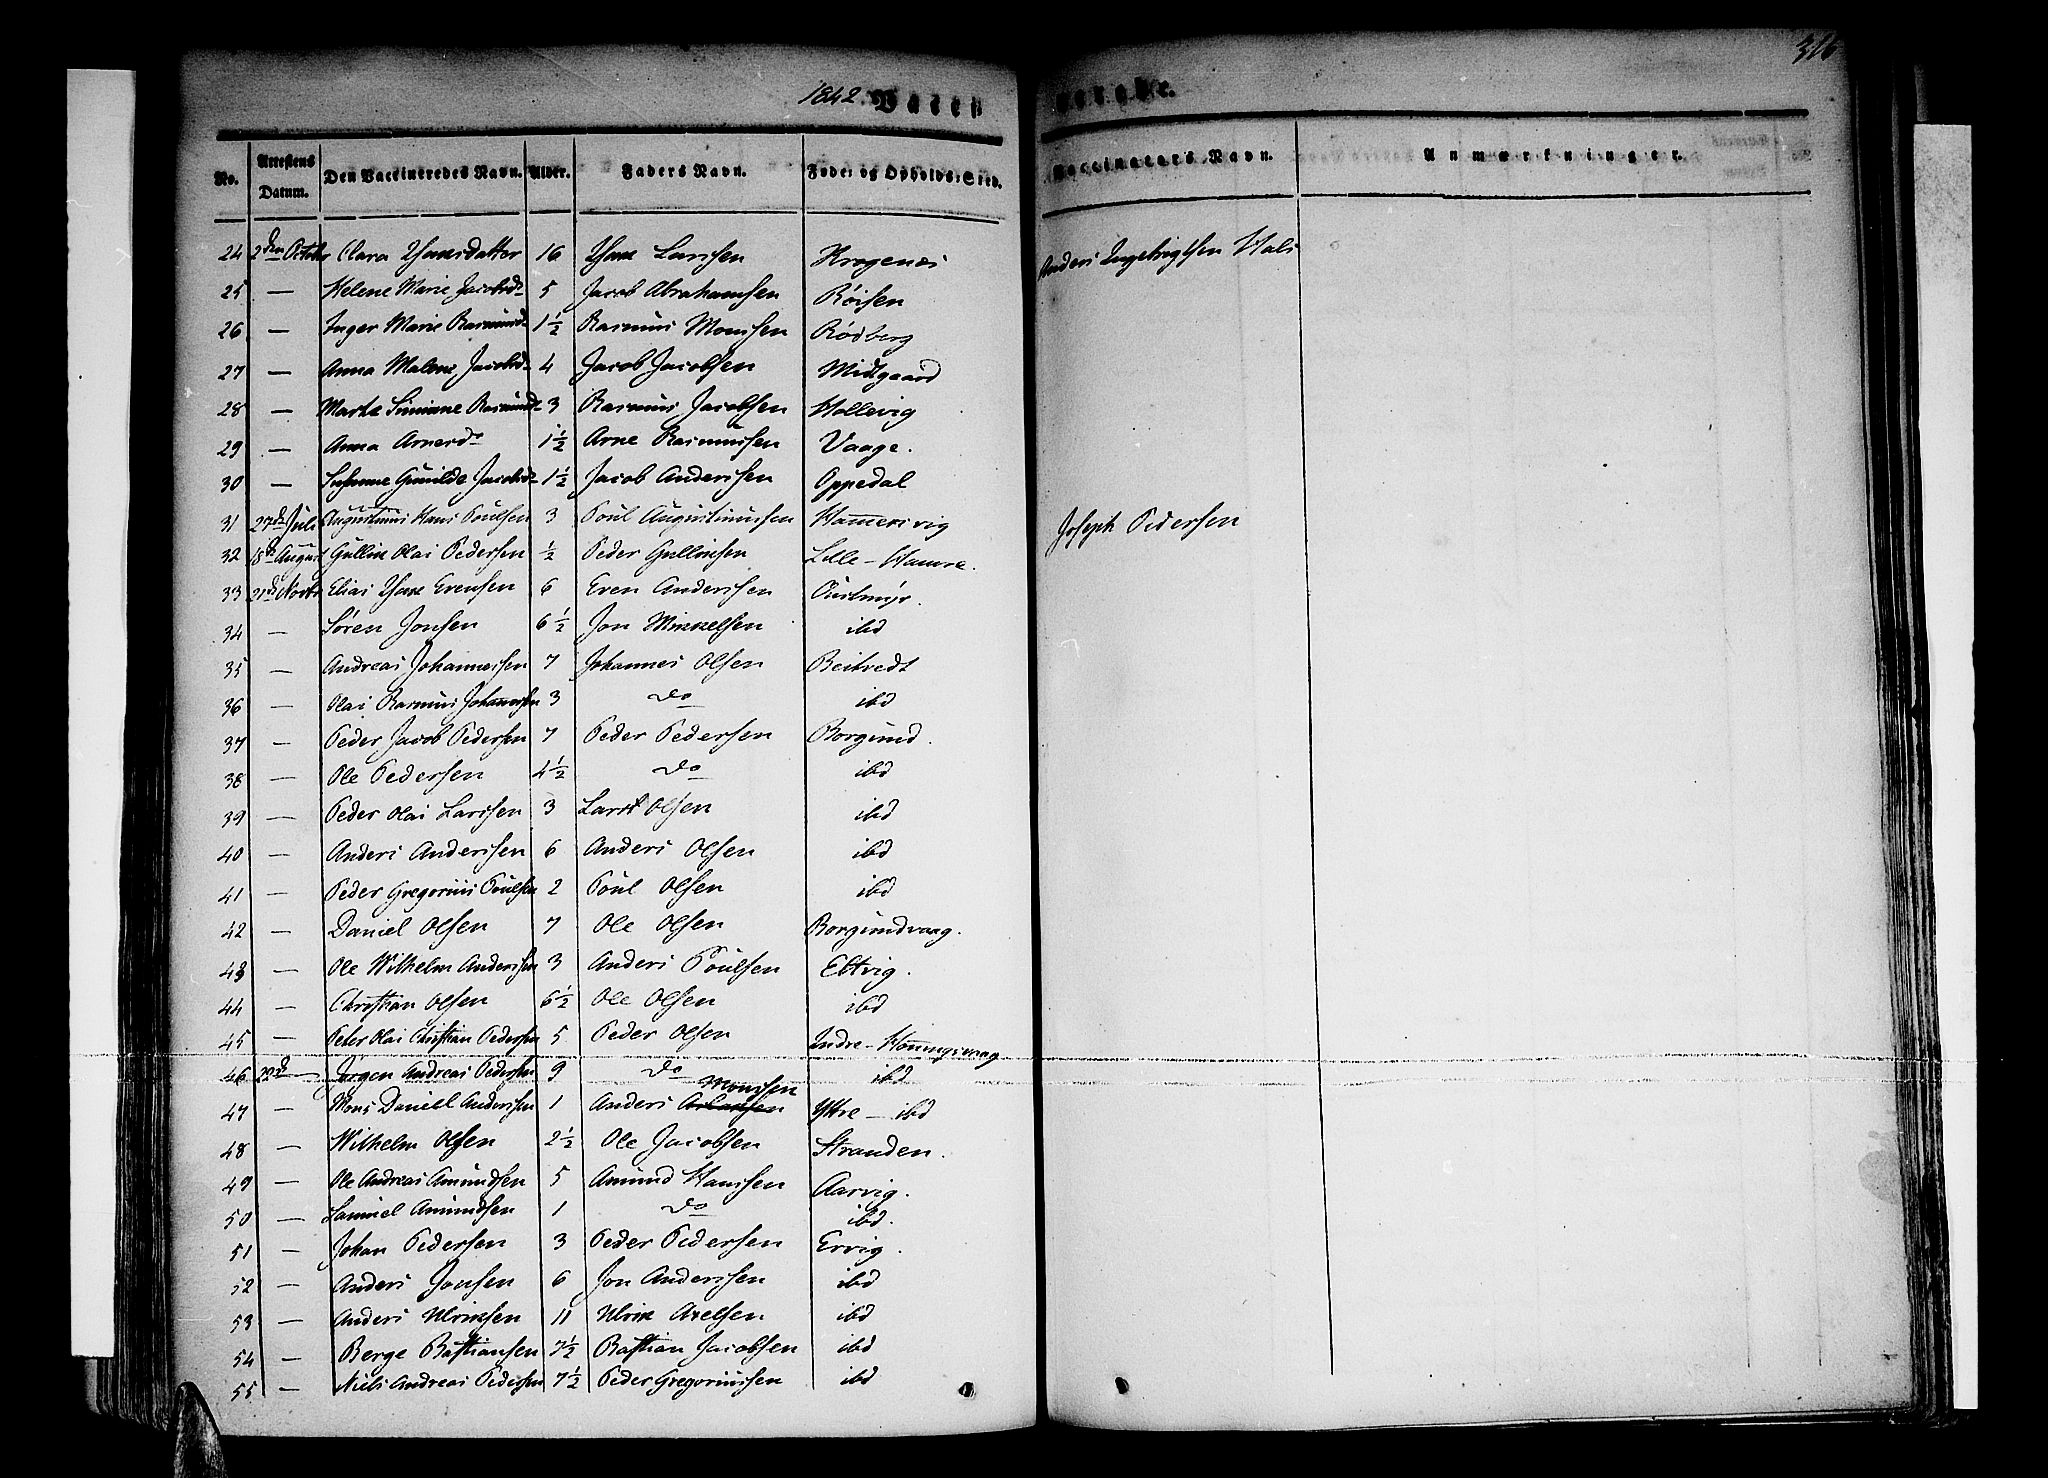 1842. Vacci
No. Attestens Datum. Den Vaccineredes Navn. Alder. Faders Navn. Føde- og Opholds-Sted.
24 2den Octobr Clara Thoresdatter 16 Thore Larssen Krogenæs
25 — Helene Marie Jacobsd. 5 Jacob Abrahamsen Røisen
26 — Inger Marie Rasmusd. 1½ Rasmus Monssen Rødberg
27 — Anna Malene Jacobsd. 4 Jacob Jacobsen Midtgaard
28 — Marte Rasmusd. 3 Rasmus Jacobsen Hollevig
29 — Anna Arnesd. 1½ Arne Rasmussen Vaage.
30 — Susanne Gunilde Jacobsd. 1½ Jacob Anderssen Oppedal
31 27d Juli Augustinus Hans Poulsen 3 Poul Augustinussen Hammersvig
32 18d August Gullik Olai Pedersen ½ Peder Gulliksen Lille-Hamre.
33 21d Novbr Elias Evensen 6 Even Anderssen
34 — Søren Jonsen 6½ Jon Mikkelsen ibd
35 — Andreas Johannessen 7 Johannes Olsen Beitvedt
36 — Olai Rasmus Johannessen 3 do ibd
37 — Peder Jacob Pedersen 7 Peder Pedersen Borgund.
38 — Ole Pedersen 4½ do ibd
39 — Peder Olai Larssen 3 Lars Olsen ibd
40 — Anders Anderssen 6 Anders Olsen ibd
41 — Peder Gregorius Poulsen 2 Poul Olsen ibd
42 — Daniel Olsen 7 Ole Olsen Borgundvaag.
43 — Ole Wilhelm Anderssen 3 Anders Poulsen Eltvig.
44 — Christian Olsen 6½ Ole Olsen ibd
45 — Peter Olai Christian Pedersen 5 Peder Olsen Indre-Honningsvaag
46 22d — Jørgen Andreas Pedersen 9 do ibd
Monssen
47 — Mons Daniel Anderssen 1 Anders Ytre — ibd
48 — Wilhelm Olsen 2½ Ole Jacobsen Stranden.
49 — Ole Andreas Amundsen 5 Amund Hanssen Aarvig.
50 — Samuel Amundsen 1 do ibd.
51 — Johan Pedersen 3 Peder Pedersen Ervig.
52 — Anders Jonsen 6 Jon Anderssen ibd
53 — Anders Ulriksen 11 Ulrik Axelsen ibd
54 — Berge Bastiansen 7½ Bastian Jacobsen ibd
55 — Niels Andreas Pedersen 7½ Peder Gregoriussen ibd
316
Vaccinateurs Navn. Anmærkninger.
Anders Ingebrigtsen Hals
Joseph Pedersen